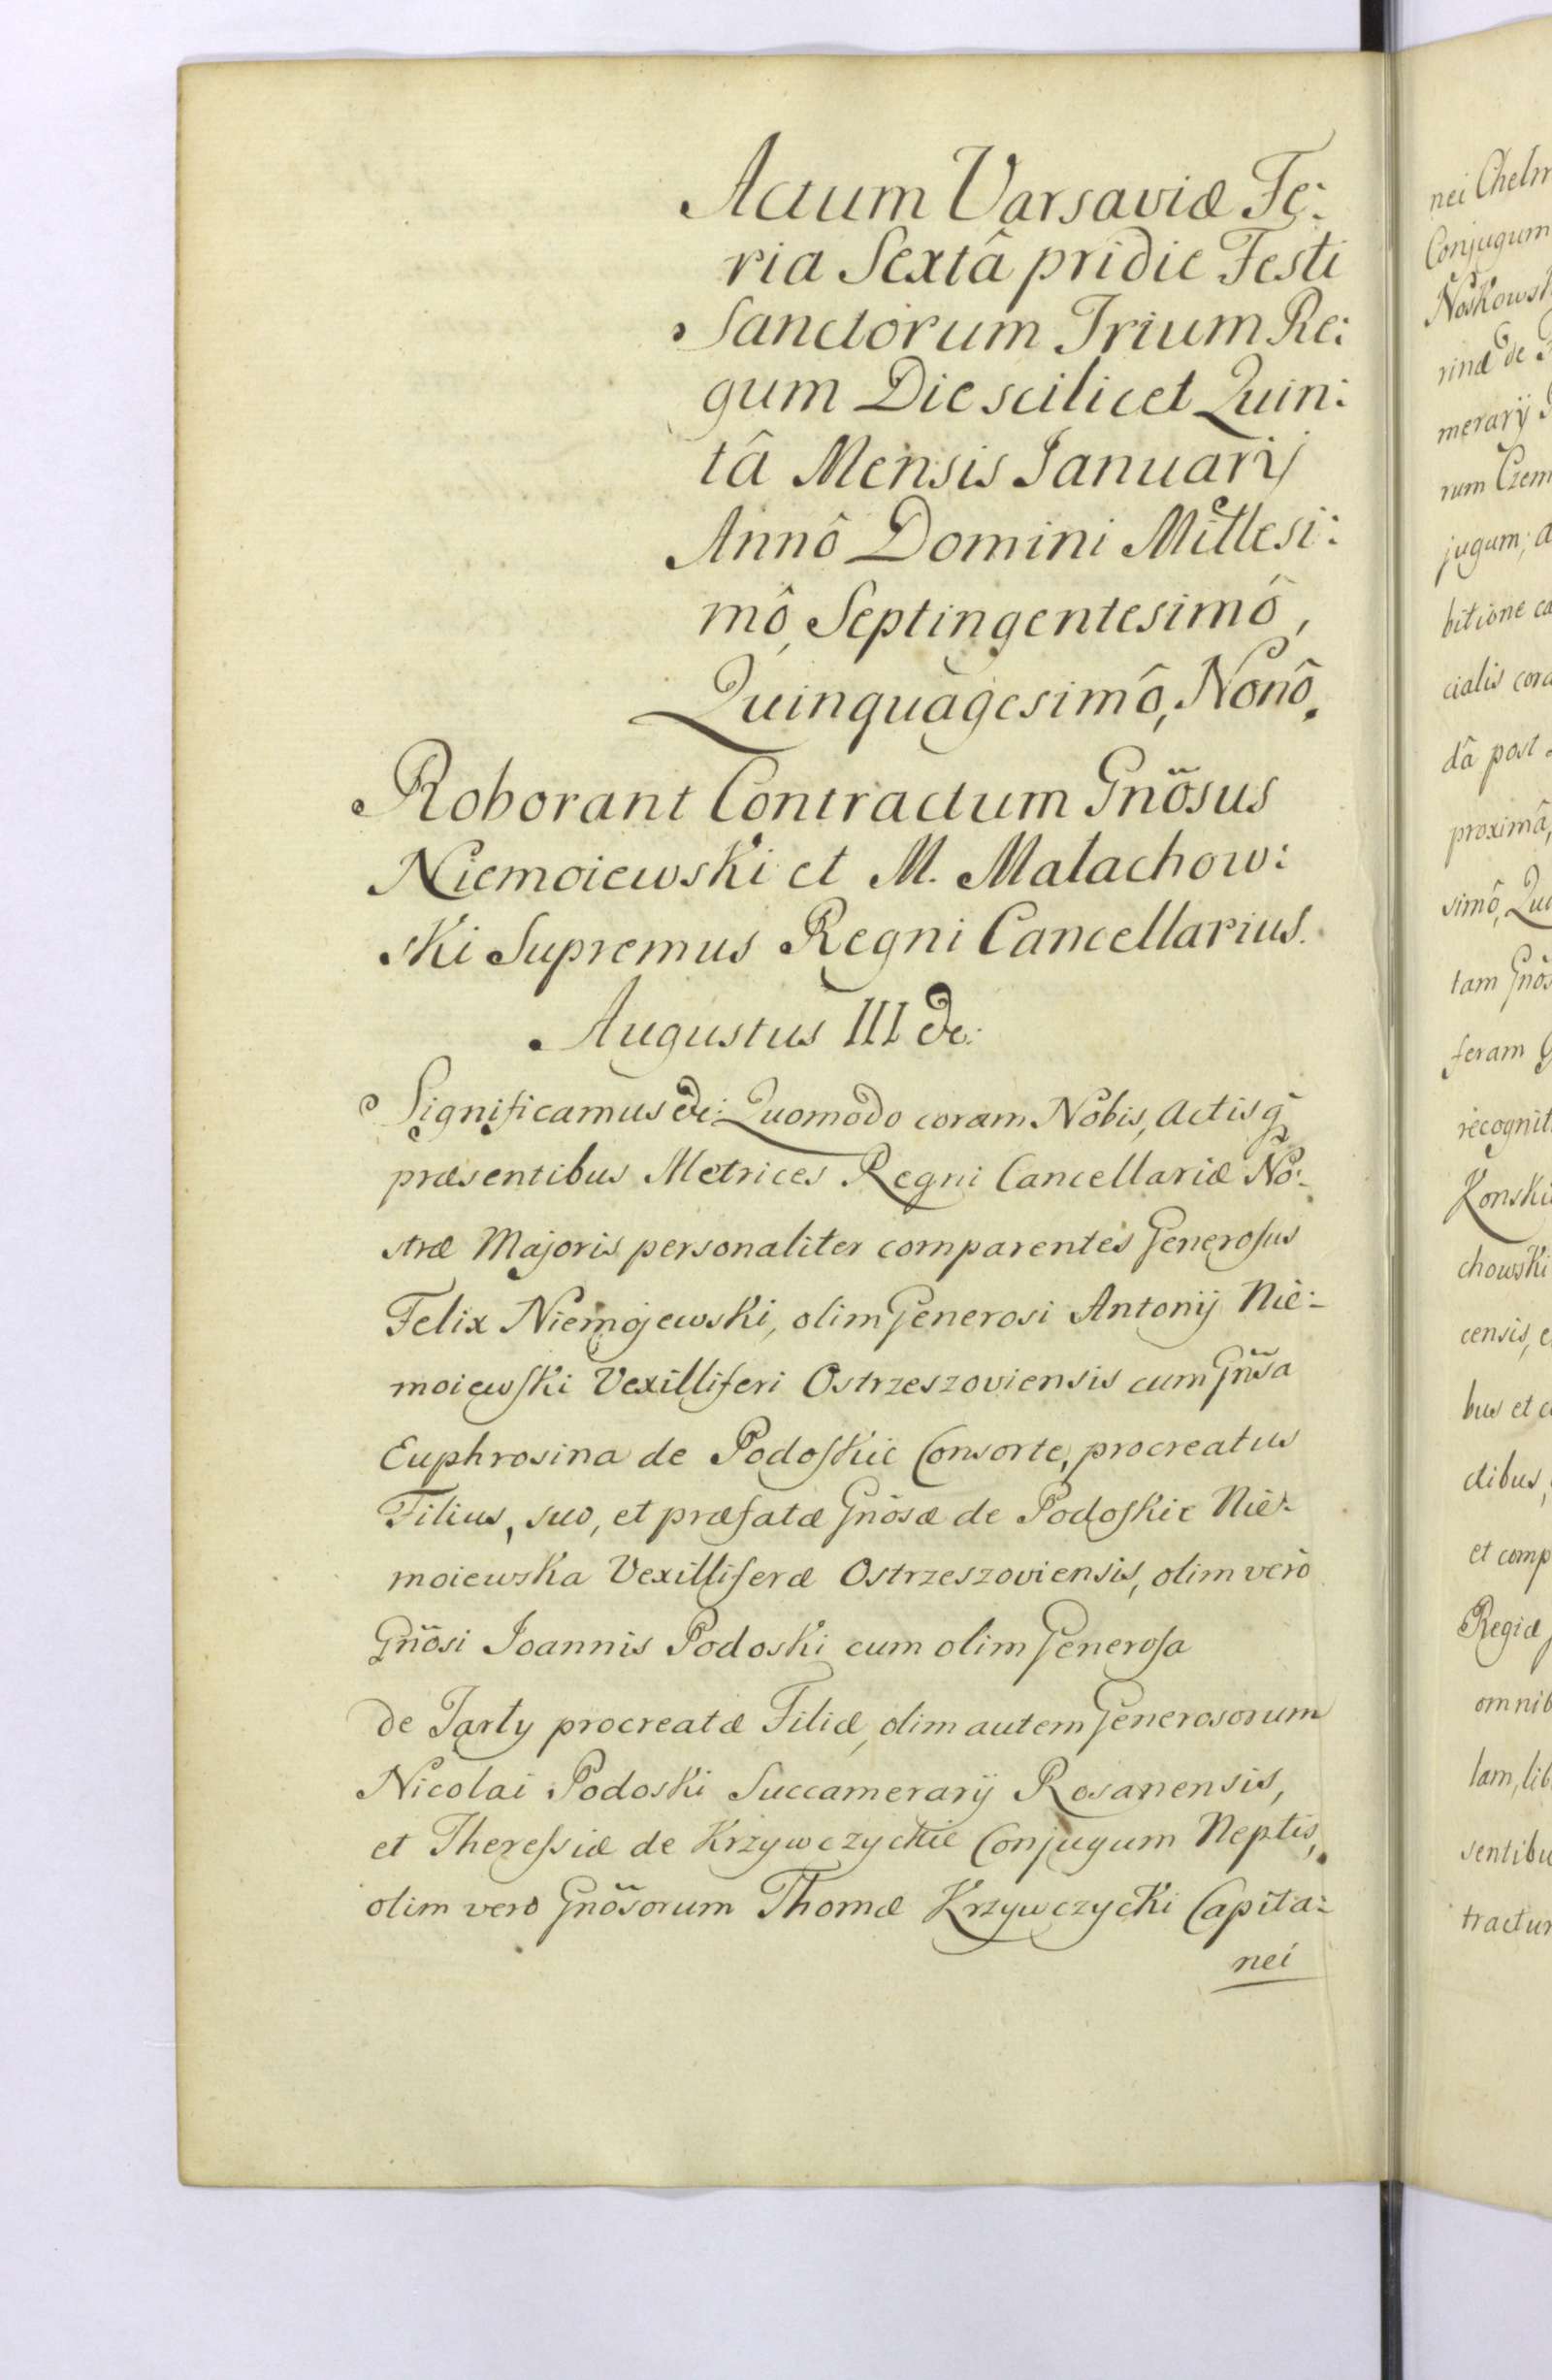 Actum Varsaviæ Fe:
ria Sextâ pridie Festi
Sanctorum Trium Re:
gum Die scilicet Quin:
tâ Mensis Januarij
Annô Domini Millesi:
mô, Septingentesimô,
Quinquagesimô, Nonô.
Roborant Contractum Gnõsus
Niemoiewski et M. Małachow:
ski Supremus Regni Cancellarius.
Augustus III &c:
Significamus &c: Quomodo coram Nobis, Actisq̃
præsentibus Metrices Regni Cancellariæ No:
stræ Majoris personaliter comparentes Generosus
Felix Niemojewski, olim Generosi Antonij Nie:
moiewski Vexilliferi Ostrzeszoviensis cum Gnsa
Euphrosina de Podoskie Consorte, procreatus
Filius, suo, et præfatæ Gnõsæ de Podoskie Nie:
moiewska Vexilliferæ Ostrzeszoviensis, olim verò
Gnõsi Joannis Podoski cum olim Generosa
de Jarły procreatæ Filiæ, olim autem Generosorum
Nicolai Podoski Succamerarij Rosanensis,
et Theressiæ de Krzywczyckie Conjugum Neptis,
olim vero Gnõsorum Thomæ Krzywczycki Capita:
nei
nei Chelm
Conjugum
Noskowsk
rinæ de
merarij
rum Czem
jugum; a
bitione ca
cialis cora
dâ post
proximâ,
simô, Qu
tam Gnõs
feram
recognit
Konski
chowski
censis, e
bus et c
dibus,
et comp
Regiæ
omnib
lam, lib
sentibu
tractum